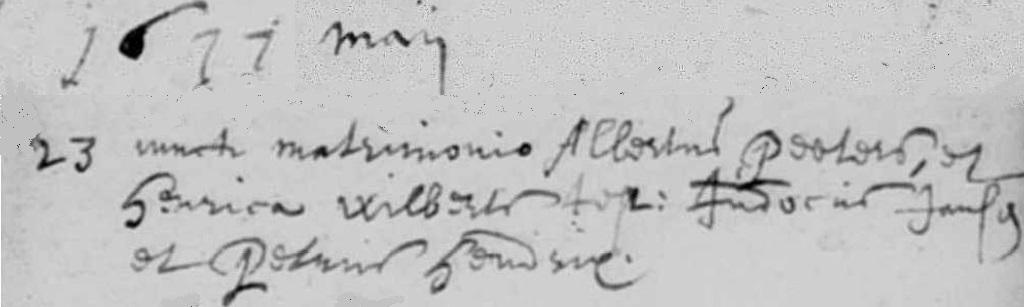 1677 maij
23 iuncti matrimonio Albertus Peeters, et
Henrica Wilberts test: Judocus Jansen
et Petrus Hendrix.